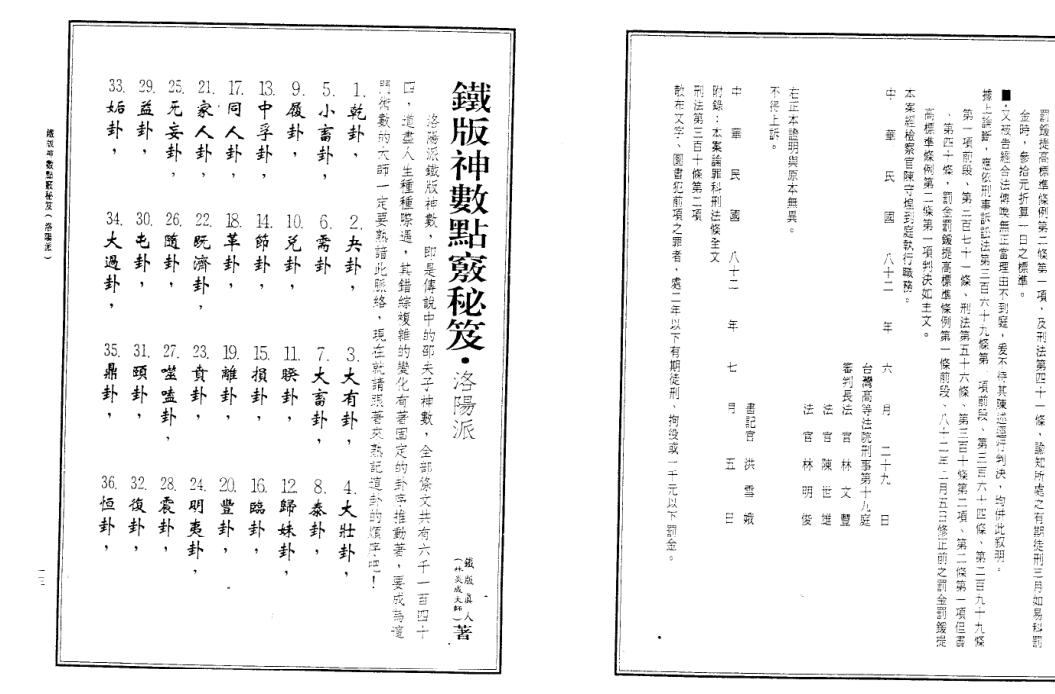 罰鍰提高標準條例第二條第一項，及刑法第四十一條，諭知所處之有期徒刑三月如易科罰
金時，參拾元折算一日之標準。
■又被告經合法傳喚無正當理由不到庭，爰不待其陳述逕行判決，均併此敍明。
據上論斷，應依刑事訴訟法第三百六十九條第一項前段、第三百六十四條、第二百九十九條
第一項前段、第三百七十一條、刑法第五十六條、第三百十條第二項、第二條第一項但書
、第四十條，罰金罰鍰提高標準條例第一條前段、八十二年二月五日修正前之罰金罰鍰提
高標準條例第二條第一項判決如主文。
本案經檢察官陳守煌到庭執行職務。
中華民國八十二年六月二十九日
台灣高等法院刑事第十九庭
審判長法官林文豐
法官陳世雄
法官林明俊
右正本證明與原本無異。
不得上訴。
書記官洪雪娥
中華民國八十二年七月五日
附錄：本案論罪科刑法條全文
刑法第三百十條第二項
散布文字、圖畫犯前項之罪者，處二年以下有期徒刑、拘役或一千元以下罰金。
鐵版神數點竅秘笈・洛陽派
鐵版真人
（林炎成大師）著
洛陽派鐵版神數，即是傳說中的邵夫子神數，全部條文共有六千一百四十
四，道盡人生種種際遇，其錯綜複雜的變化有著固定的卦序推動著，要成為這
門術數的大師一定要熟諳此脈絡，現在就請張著來熟記這卦的順序吧！
1.乾卦， 2.夬卦， 3.大有卦， 4.大壯卦，
5.小畜卦 6.需卦 7.大畜卦， 8.泰卦，
9.履卦， 10.兌卦， 11.睽卦， 12.歸妹卦，
13.中孚卦， 14.節卦， 15.損卦， 16.臨卦，
17.同人卦， 18.革卦， 19.離卦， 20.豐卦，
21.家人卦， 22.既濟卦， 23.賁卦， 24.明夷卦，
25.无妄卦， 26.隨卦， 27.噬嗑卦， 28.震卦，
29.益卦， 30.屯卦， 31.頤卦， 32.復卦，
33.姤卦， 34.大過卦， 35.鼎卦， 36.恒卦，
鐵版神數點竅秘笈（洛陽派）